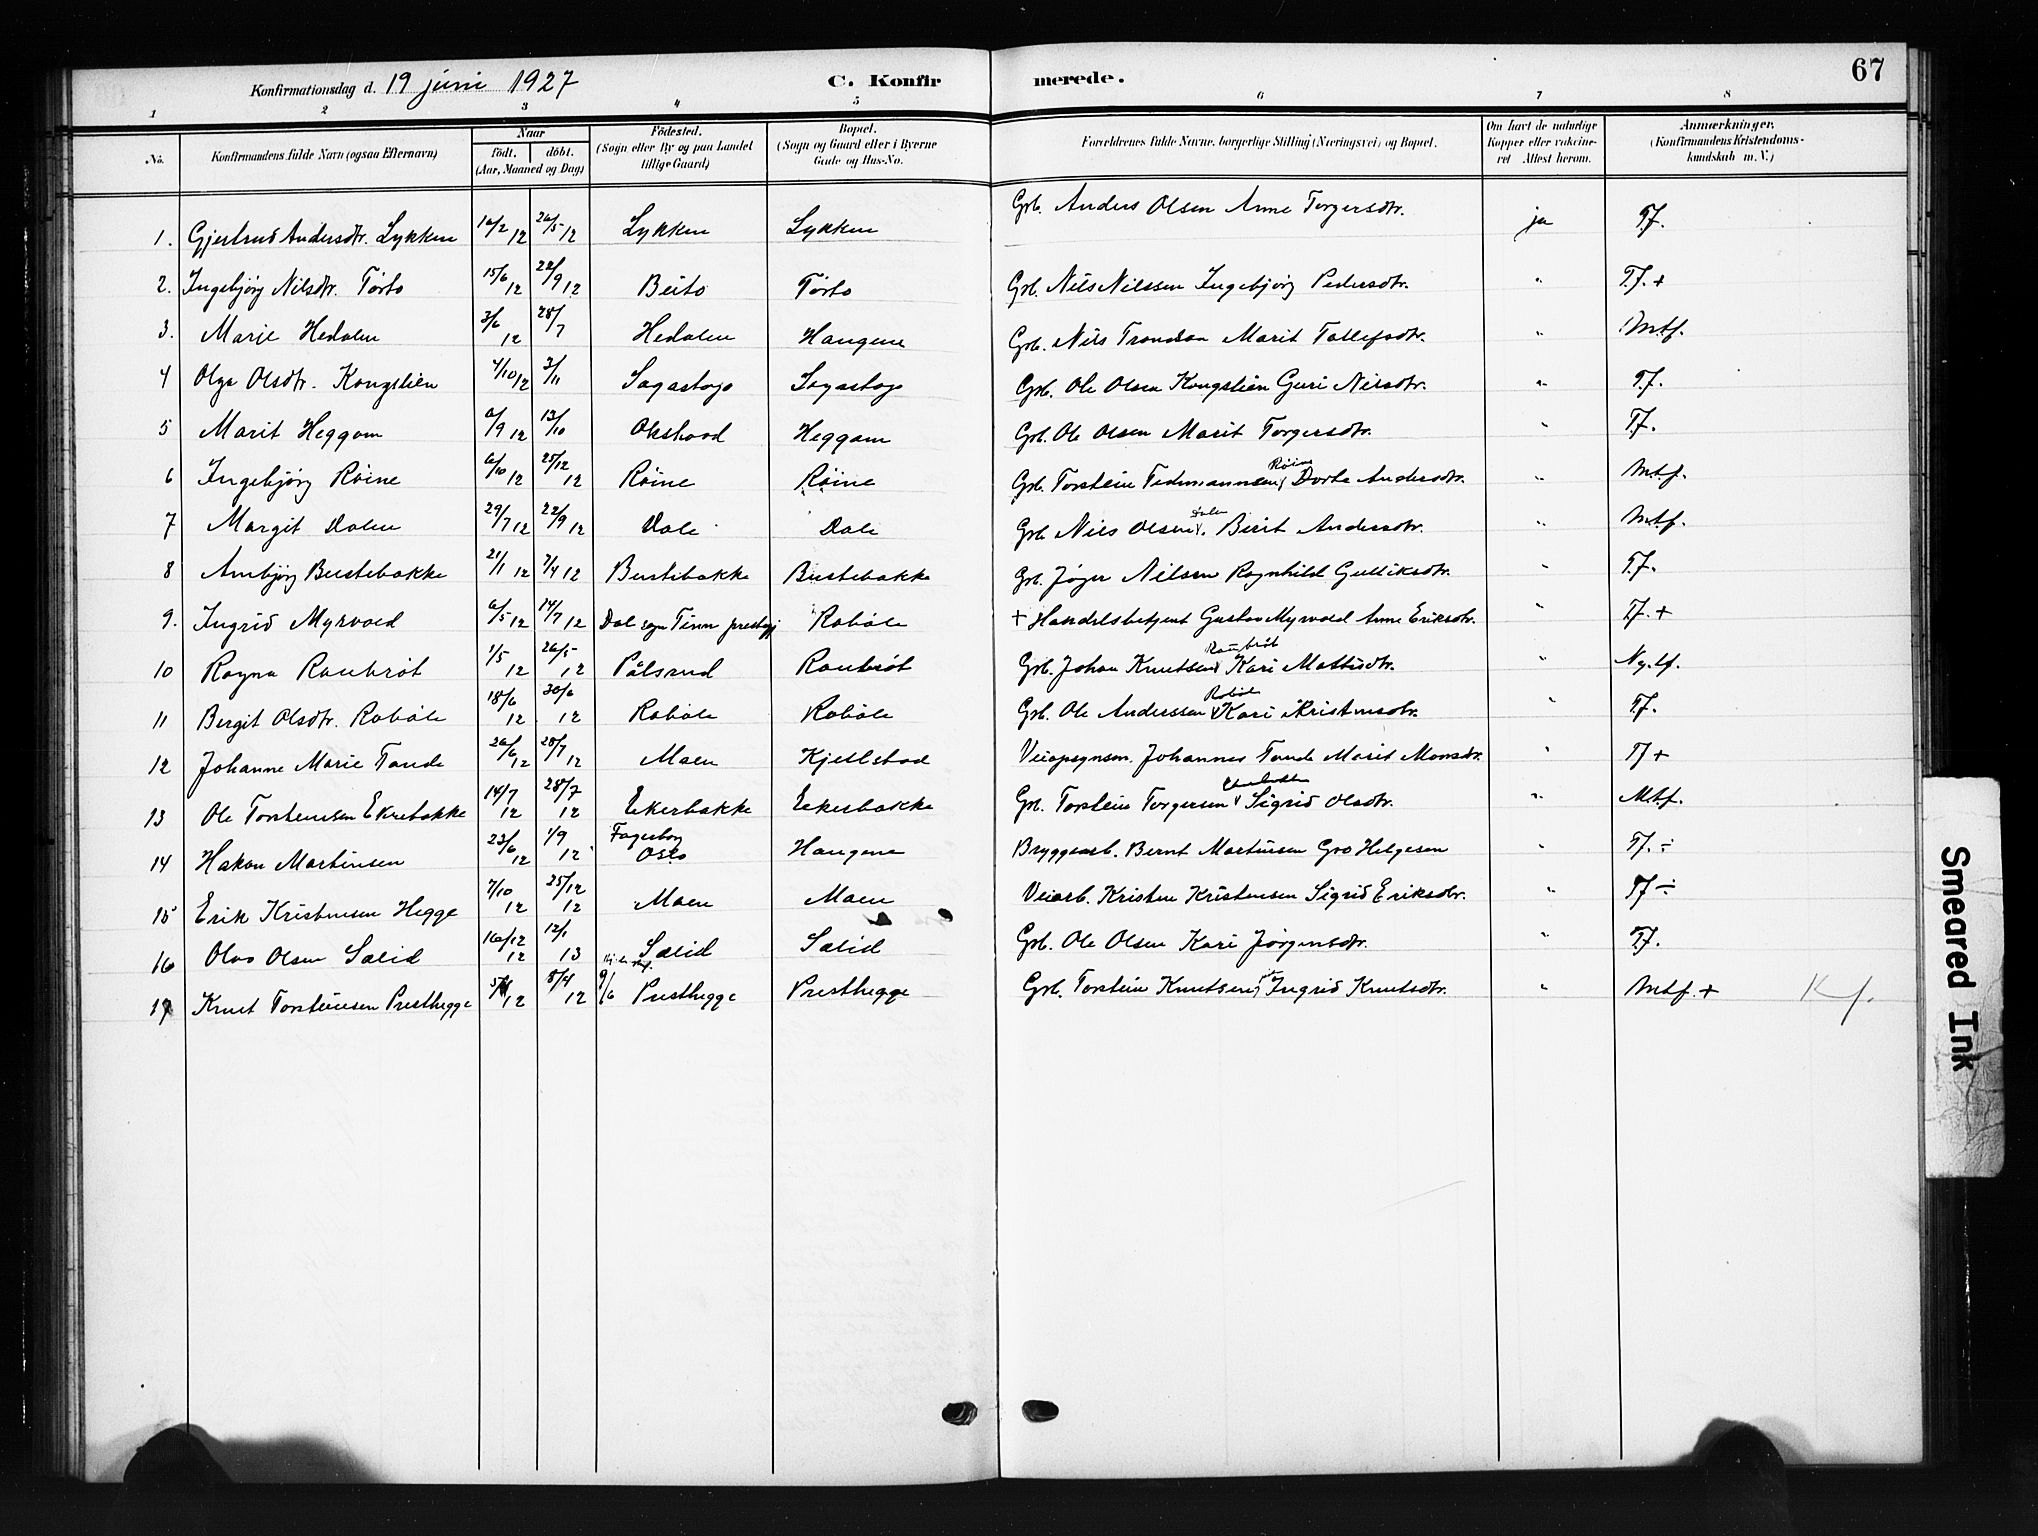 67
Konfirmationsdag d. 19 juni 1927 C. Konfirmerede.
1 2 3 4 5 6 7 8
No. Konfirmandens fulde Navn (ogsaa Efternavn) Naar født. døbt. (Aar, Maaned og Dag) Födested. (Sogn eller By og paa Landet tillige Gaard) Bopæl. (Sogn og Gaard eller i Byerne Gade og Hus-No. Forældrenes fulde Navne, borgerlige Stilling (Næringsvei) og Bopæl. Om havt de naturlige Kopper eller vakcineret Attest herom. Anmærkninger. (Konfirmandens Kristendomskundskab m. V.)
1. Gjertrud Andersdtr. Lykken 16/2 12 26/5 12 Lykken Lykken Grb. Anders Olsen Anne Torgersdtr. ja T.f.
2. Ingebjörg Nilsdtr. Törto 15/6 12 22/9 12 Beito Törto Grb. Nils Nilssen Ingebjörg Pedersdtr. " T.f. +
3. Marie Hedalen 3/6 12 28/7 Hedalen Haugene Grb. Nils Trondsen Marit Tollefsdtr. " Mtf.
4 Olga Olsdtr. Kongslien 4/10 12 3/11 Sagastogo Sagastogo Grb. Ole Olsen Kongslien Guri Nilsdtr. " T.f.
5 Marit Heggom 6/9 12 13/10 Okshovd Heggom Grb. Ole Olsen Marit Torgersdtr. " T.f.
6 Ingebjörg Röine 6/10 12 25/12 12 Röine Röine Grb. Torstein Tidemannsen Röine Dorte Andersdtr. " Mtf.
7 Margit Dalen 29/7 12 22/9 12 Dale Dale Grb. Nils Olsen Dalen Berit Andersdtr. " Mtf.
8 Ambjörg Bustebakke 21/1 12 7/4 12 Bustebakke Bustebakke Grb. Jöger Nilsen Ragnhild Gulliksdtr. " T.f.
9. Ingrid Myrvold 6/5 12 14/7 12 Dal sogn Tinn prestegj Robøle + Handelsbetjent Gustav Myrvold Anne Eriksdtr. " T.f. +
10 Ragna Raubröt 1/5 12 26/5 12 Pålsrud Raubröt Grb. Johan Knutsen Raubröt Kari Mattisdtr. " Ng.tf.
11 Bergit Olsdtr. Robøle 18/6 12 30/6 12 Robøle Robøle Grb. Ole Anderssen Robøle Kari Kristensdtr. " T.f.
12 Johanne Marie Tande 26/6 12 28/7 12 Moen Kjellstad Veiopsynsm. Johannes Tande Marit Monsdtr. " Tf +
13 Ole Torsteinsen Ekrebakke 14/7 12 28/7 12 Ekerbakke Ekerbakke Grb. Torstein Torgersen Sigrid Olsdtr. " Mtf.
14 Hakon Martinsen 23/6 12 1/9 12 Fagerborg Oslo Haugene Bryggearb. Bernt Martinsen Gro Helgesen " Tf. ÷
15 Erik Kristensen Hegge 7/10 12 25/12 12 Moen Moen Veiarb. Kristen Kristensen Sigrid Eriksdtr. " Tf ÷
16 Olav Olsen Sælid 16/12 12 12/1 13 Sælid Sælid Grb. Ole Olsen Kari Jörgensdtr. " T.f.
17 Knut Torsteinsen Presthegge 12 8/4 12 9/6 Presthegge Presthegge Grb. Torstein Knutsen Ingrid Knutsdtr. " Mtf. + Kf.
Smeared Ink